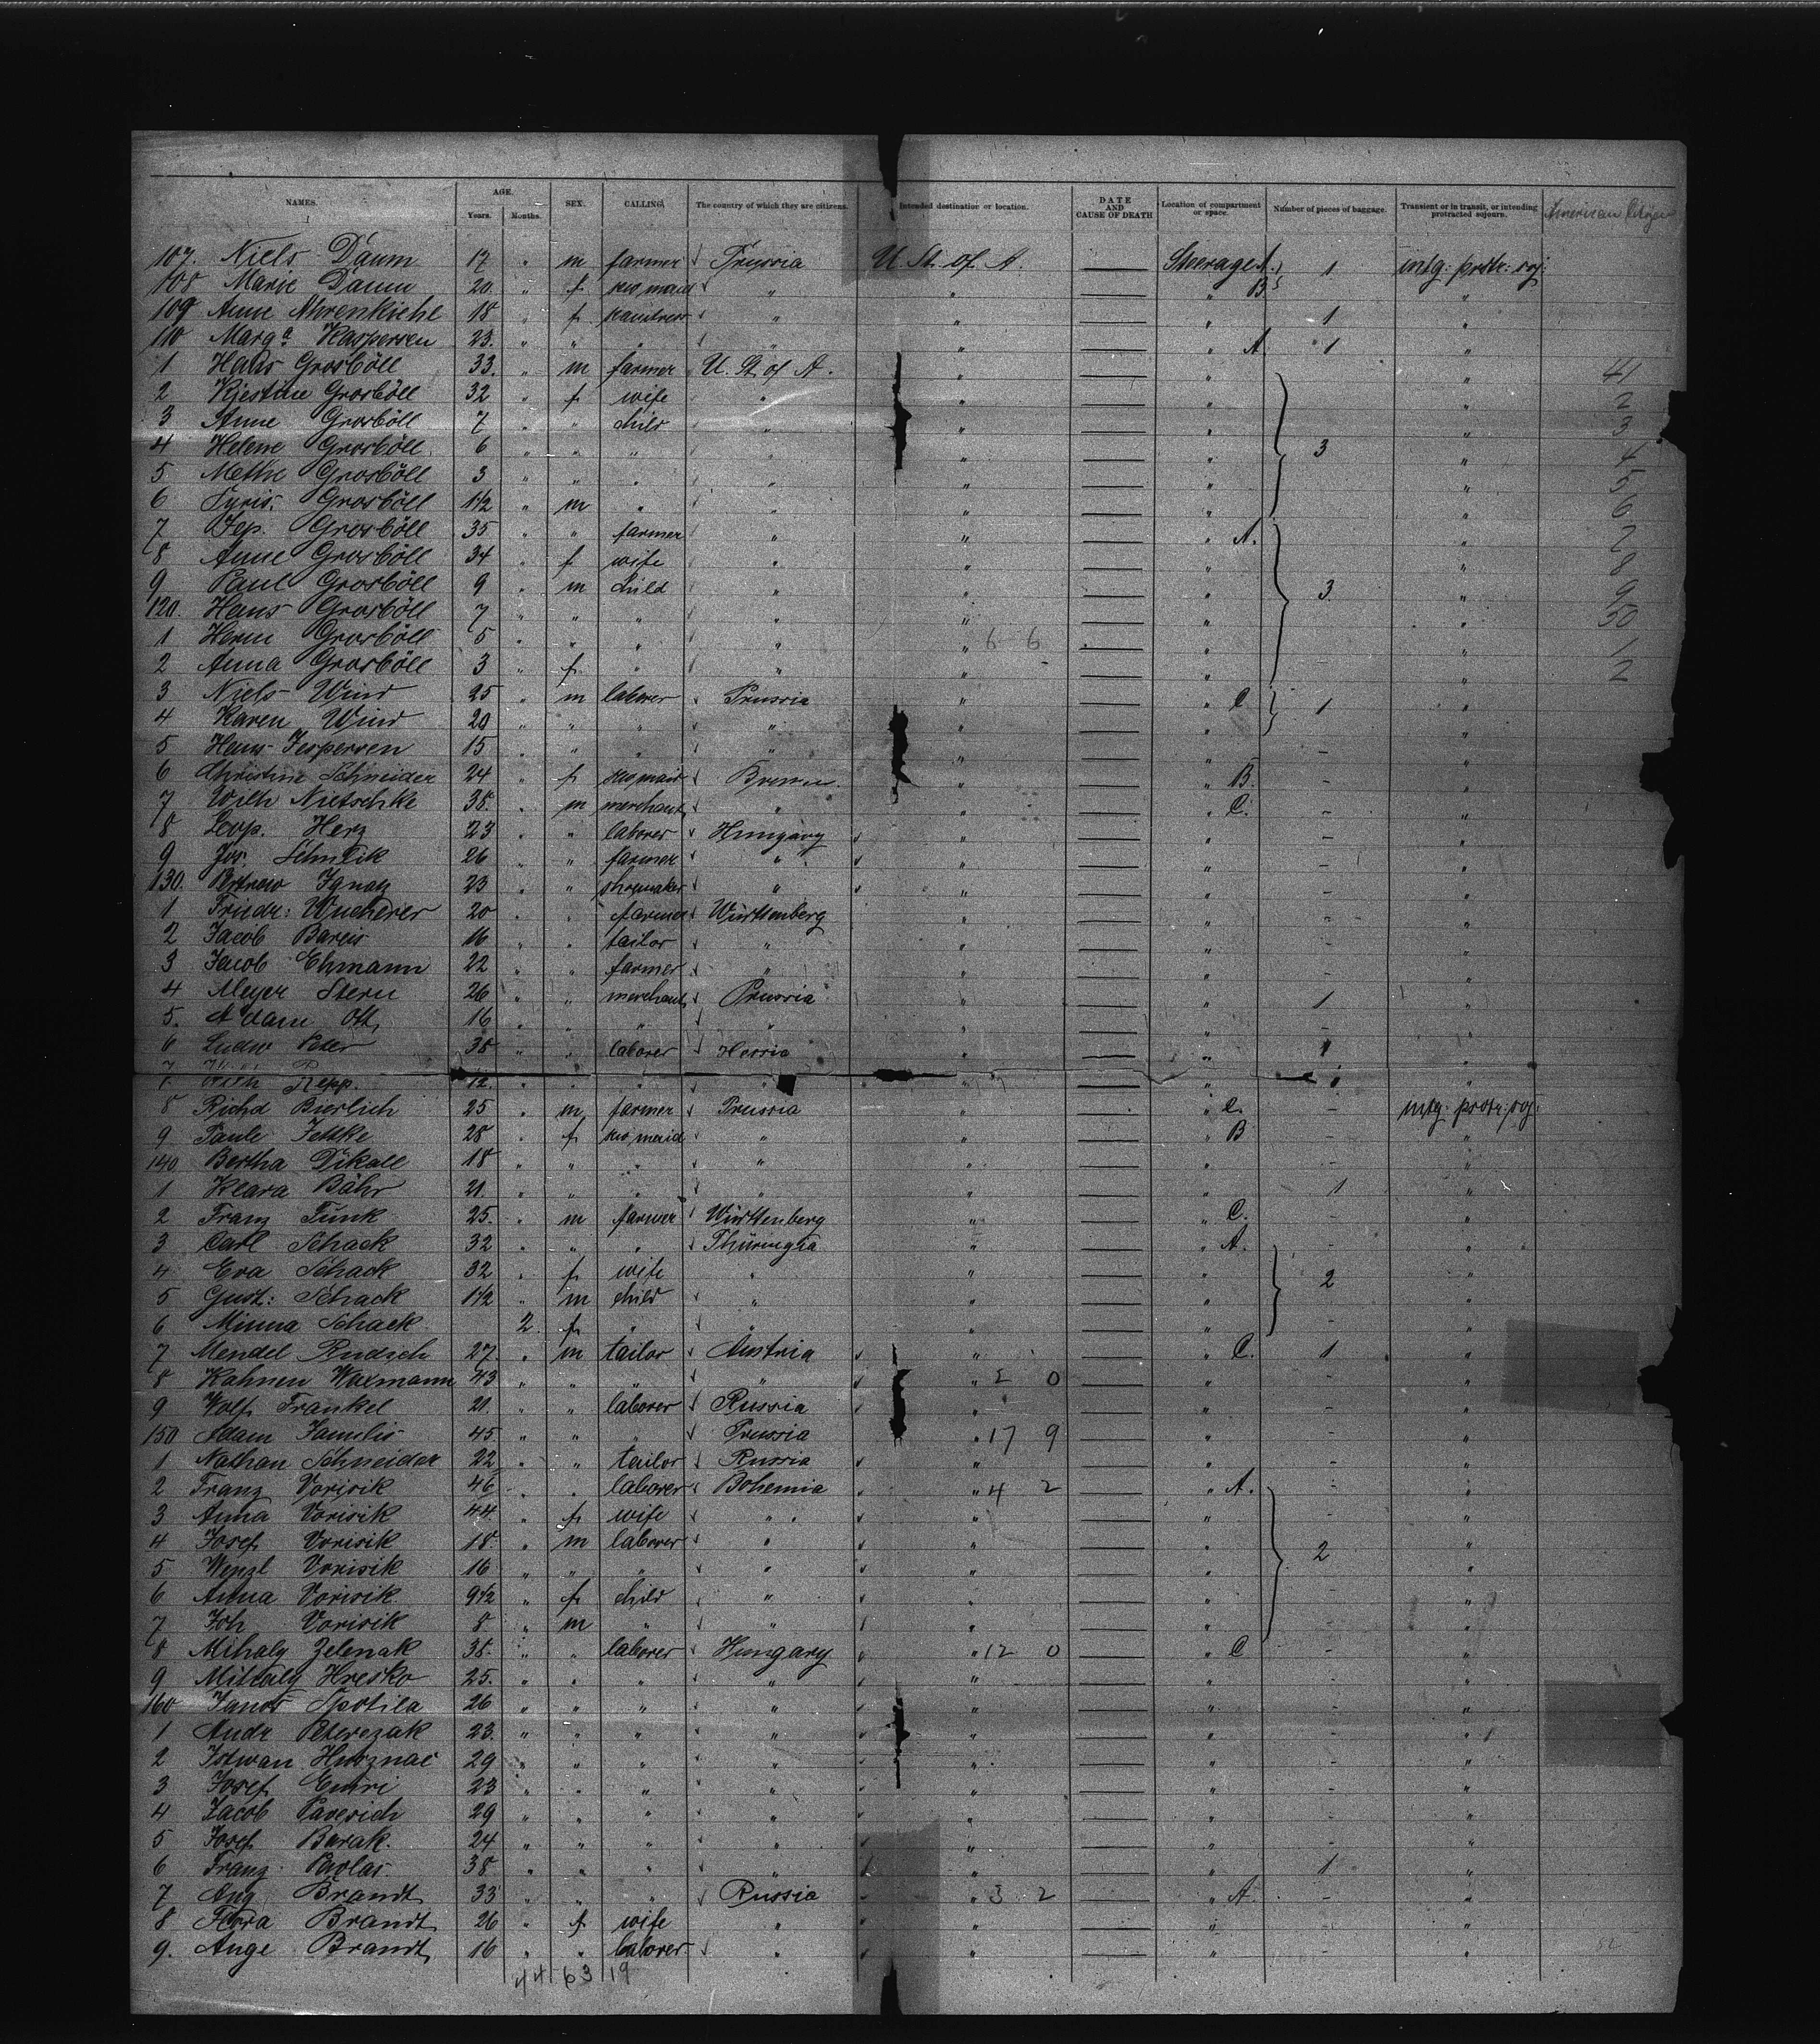 NAMES. AGE. Years. Months. SEX. CALLING. The country of which they are citizens. Intended destination or location. DATE AND CAUSE OF DEATH Location of compartment or space. Number of pieces of baggage. Transient or in transit, or intending protracted sojourn. American
107. Niels Daum 17 " m farmer Prussia U. St. of A. Steerage A. 1 intg: protr: soj:
108 Marie Daum 20 " f " " " B. "
109 Anne Ahrenkiehl 18 " f " " " 1 "
110 Marg.a Kaspersen 23. " " " " " " A 1 "
1 Hans Grosböll 33. " m farmer U. St. of A. " " " 41
2 Kjestine Grosböll 32 " f wife " " " " 2
3 Anne Grosböll 7 " " child " " " " 3
4 Helene Grosböll 6 " " " " " " 3 " 4
5 Methe Grosböll 3 " " " " " " " 5
6 Grosböll 1 1/2 " m " " " " " 6
7 Jep. Grosböll 35 " " farmer " " " A. " 7
8 Anne Grosböll 34 " f wife " " " " 8
9 Paul Grosböll 9 " m child " " " 3 " 9
120. Hans Grosböll 7 " " " " " " " 50
1 Herm Grosböll 5 " " " " " 6 6 " " 1
2 Anna Grosböll 3 " f " " " " " 2
3 Niels Wind 25 " m laborer Prussia " " C 1 "
4 Karen Wind 20 " " " " " " "
5 Hans Jespersen 15 " " " " " " - "
6 Christine Schneider 24 " f Bremen " " B. - "
7 Wilh Nietschke 38. " m merchant " " " C. - "
8 Leop. Herz 23 " " laborer Hungary " " - "
9 Jos. 26 " " farmer " " " - "
130. Ignatz 23 " " shoemaker " " " - "
1 Friedr: Wucherer 20 " " farmer Württenberg " " - "
2 Jacob Bareis 16 " " tailor " " " - "
3 Jacob Ehmann 22 " " farmer " " " "
4 Meyer Stern 26 " " merchant Prussia " " 1 "
5. Adam Ott 16 " " " " " " - "
6 Ludw Peter 38 " " laborer Hessia " " 1 "
7 Repp. 12. " " " " " " "
8 Richd Bierlich 25 " m farmer Prussia " " C. - intg: protr: soj:
9 Paule Jettke 28 " f " " " B "
140 Bertha Dikall 18 " " " " " " - "
1 Klara Bähr 21. " " " " " " 1 "
2 Franz Funk 25. " m farmer Württenberg " " C. - "
3 Carl Schack 32 " " " Thüringia " " A. - "
4 Eva Schack 32 " f wife " " " 2 "
5 Gust: Schack 1 1/2 " m child " " " "
6 Minna Schack 2 f " " " " - "
7 Mendel 27. " m tailor Austria " " C. 1 "
8 Kahnen Waxmann 43 " " " " " 2 0 " - "
9 Wolf Frankel 21. " " laborer Russia " " - "
150 Adam 45 " " " Prussia " 17 9 " - "
1 Nathan Schneider 22 " " tailor Russia " " - "
2 Franz Vorisik 46 " " laborer Bohemia " 4 2 " A. - "
3 Anna Vorisik 44 " f wife " " " - "
4 Josef Vorisik 18. " m laborer " " " 2 "
5 Wenzl Vorisik 16 " " " " " " "
6 Anna Vorisik 9 1/2 " f child " " " - "
7 Joh Vorisik 8 " m " " " " - "
8 Mihaly Zelenak 38. " " laborer Hungary " 12 0 " C - "
9 Mihaly Hresko 25. " " " " " " - "
160 Janos Spotila 26 " " " " " " - "
1 Andr Peterszak 23. " " " " " " - "
2 Istwan 29 " " " " " " - "
3 Josef 23 " " " " " " - "
4 Jacob 29 " " " " " " - "
5 Josef Barak. 24 " " " " " " - "
6 Franz Pavlas 38 " " " " " " 1 "
7 Aug Brandt 33 " " " Russia " 3 2 " A - "
8 Flora Brandt 26 " f wife " " " - "
9. Auge Brandt 16 " " laborer " " " - "
44 63 19